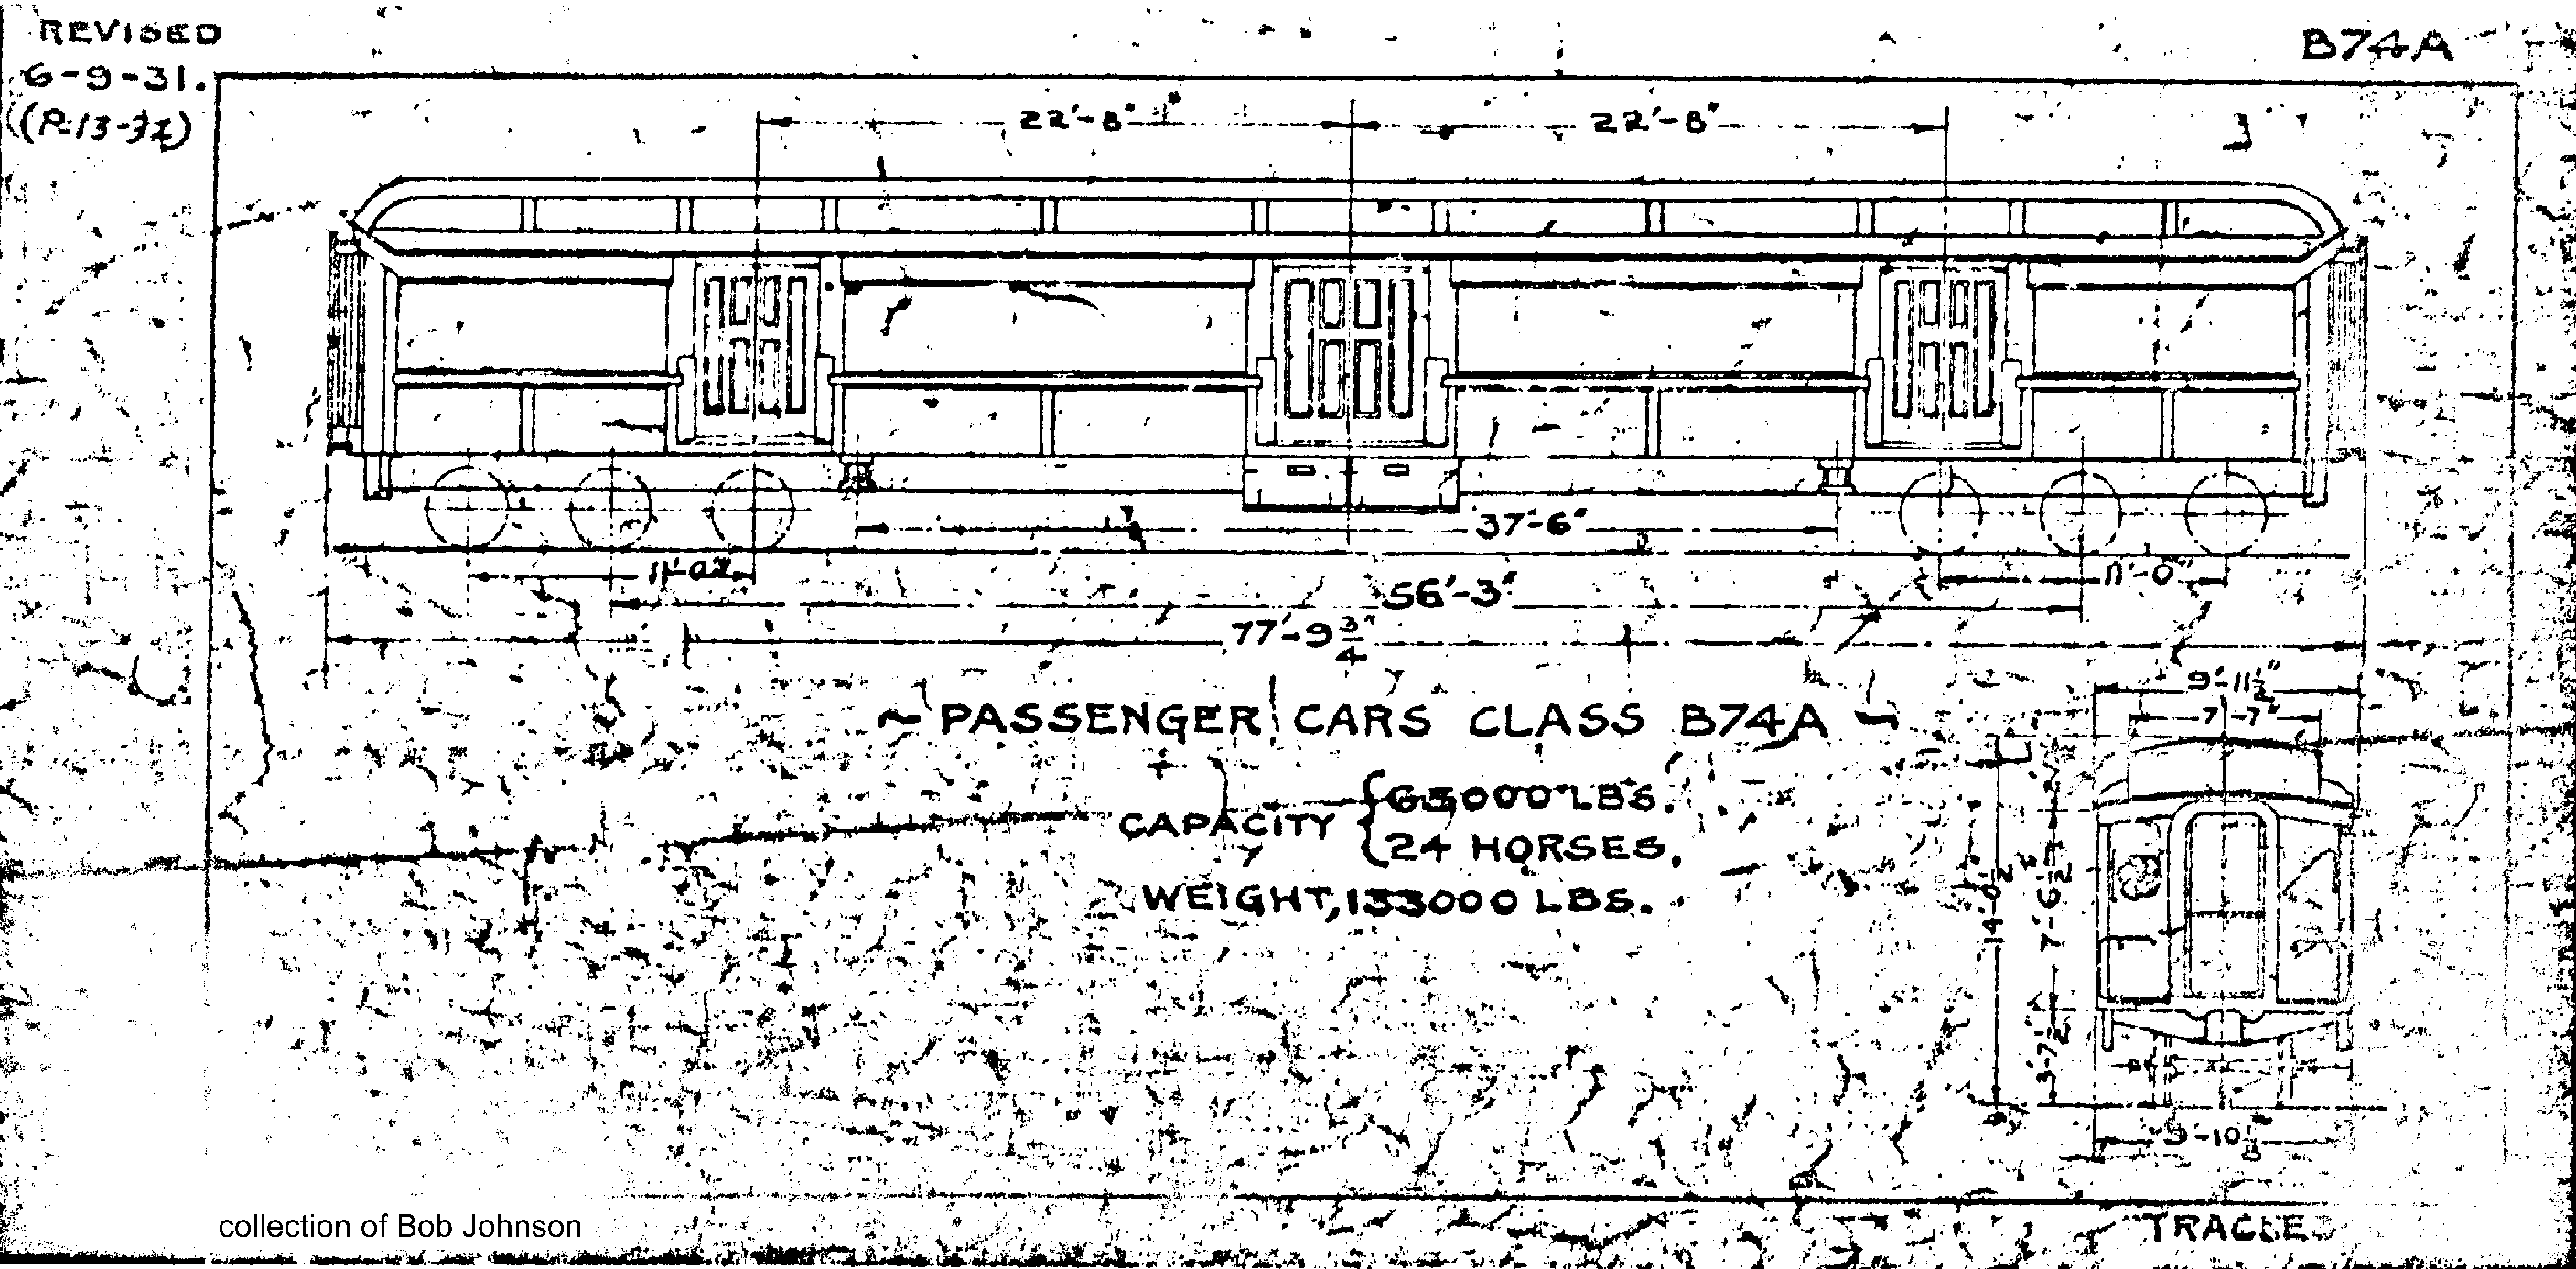 REVISED
6-9-31.
B74A
22'-8"
22'-8"
37'-6"
11'-0"
11'-0"
56'-3"
77'-9 3/4"
9'-11 1/2"
7'-7"
~ PASSENGER CARS CLASS B74A ~
CAPACITY { 63000 LBS.
24 HORSES.
WEIGHT, 133000 LBS.
7'-6 1/2"
3'-7 1/2"
9'-10 1/8
collection of Bob Johnson
TRACED